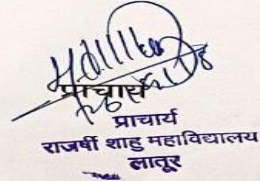 प्राचार्य
प्राचार्य
राजर्षी शाहु महाविद्यालय
लातूर